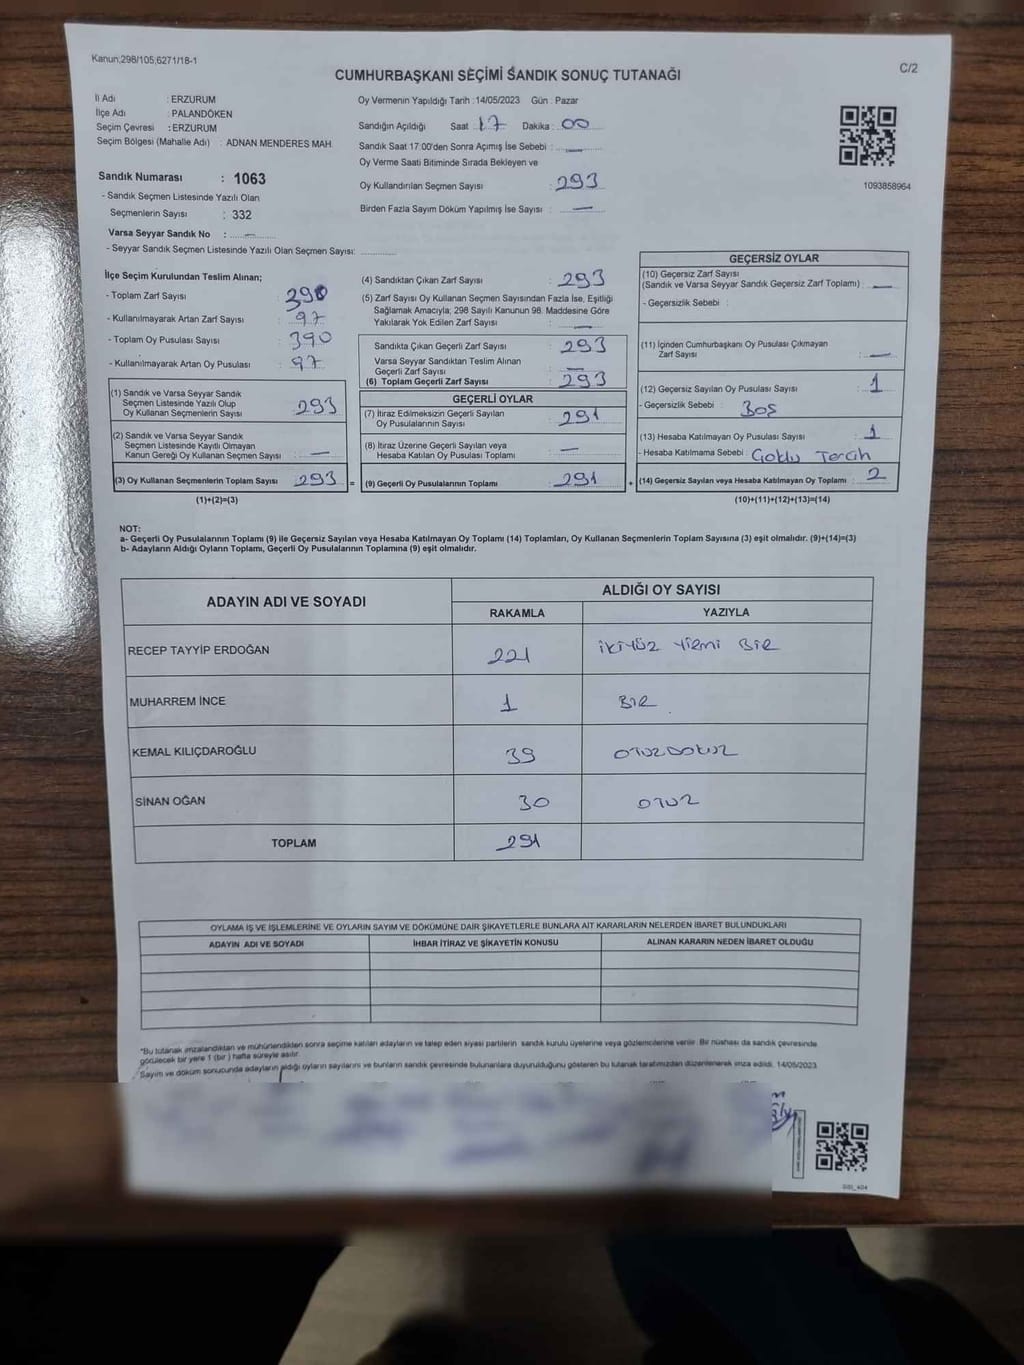 Kanun,298/105,6271/18-1
C/2
CUMHURBAŞKANI SEÇİMİ SANDIK SONUÇ TUTANAĞI
İl Adı : ERZURUM
İlçe Adı : PALANDÖKEN
Seçim Çevresi : ERZURUM
Seçim Bölgesi (Mahalle Adı) : ADNAN MENDERES MAH.
Sandık Numarası : 1063
- Sandık Seçmen Listesinde Yazılı Olan
Seçmenlerin Sayısı : 332
Varsa Seyyar Sandık No : —
- Seyyar Sandık Seçmen Listesinde Yazılı Olan Seçmen Sayısı:
Oy Vermenin Yapıldığı Tarih : 14/05/2023 Gün : Pazar
Sandığın Açıldığı Saat : 17 Dakika : 00
Sandık Saat 17:00'den Sonra Açımış İse Sebebi : —
Oy Verme Saati Bitiminde Sırada Bekleyen ve
Oy Kullandırılan Seçmen Sayısı : 293
Birden Fazla Sayım Döküm Yapılmış İse Sayısı : —
1093858964
İlçe Seçim Kurulundan Teslim Alınan;
- Toplam Zarf Sayısı : 390
- Kullanılmayarak Artan Zarf Sayısı : 97
- Toplam Oy Pusulası Sayısı : 390
- Kullanılmayarak Artan Oy Pusulası : 97
(1) Sandık ve Varsa Seyyar Sandık
Seçmen Listesinde Yazılı Olup
Oy Kullanan Seçmenlerin Sayısı : 293
(2) Sandık ve Varsa Seyyar Sandık
Seçmen Listesinde Kayıtlı Olmayan
Kanun Gereği Oy Kullanan Seçmen Sayısı : —
(3) Oy Kullanan Seçmenlerin Toplam Sayısı : 293
(1)+(2)=(3)
(4) Sandıktan Çıkan Zarf Sayısı : 293
(5) Zarf Sayısı Oy Kullanan Seçmen Sayısından Fazla İse, Eşitliği
Sağlamak Amacıyla; 298 Sayılı Kanunun 98. Maddesine Göre
Yakılarak Yok Edilen Zarf Sayısı : —
Sandıkta Çıkan Geçerli Zarf Sayısı : 293
Varsa Seyyar Sandıktan Teslim Alınan
Geçerli Zarf Sayısı : —
(6) Toplam Geçerli Zarf Sayısı : 293
GEÇERLİ OYLAR
(7) İtiraz Edilmeksizin Geçerli Sayılan
Oy Pusulalarının Sayısı : 291
(8) İtiraz Üzerine Geçerli Sayılan veya
Hesaba Katılan Oy Pusulası Toplamı : —
= (9) Geçerli Oy Pusulalarının Toplamı : 291 +
GEÇERSİZ OYLAR
(10) Geçersiz Zarf Sayısı
(Sandık ve Varsa Seyyar Sandık Geçersiz Zarf Toplamı) : —
- Geçersizlik Sebebi :
(11) İçinden Cumhurbaşkanı Oy Pusulası Çıkmayan
Zarf Sayısı : —
(12) Geçersiz Sayılan Oy Pusulası Sayısı : 1
- Geçersizlik Sebebi : Boş
(13) Hesaba Katılmayan Oy Pusulası Sayısı : 1
- Hesaba Katılmama Sebebi : Çoklu Tercih
(14) Geçersiz Sayılan veya Hesaba Katılmayan Oy Toplamı : 2
(10)+(11)+(12)+(13)=(14)
NOT:
a- Geçerli Oy Pusulalarının Toplamı (9) ile Geçersiz Sayılan veya Hesaba Katılmayan Oy Toplamı (14) Toplamları, Oy Kullanan Seçmenlerin Toplam Sayısına (3) eşit olmalıdır. (9)+(14)=(3)
b- Adayların Aldığı Oyların Toplamı, Geçerli Oy Pusulalarının Toplamına (9) eşit olmalıdır.
ADAYIN ADI VE SOYADI ALDIĞI OY SAYISI
RAKAMLA YAZIYLA
RECEP TAYYİP ERDOĞAN 221 İKİYÜZ YİRMİ BİR
MUHARREM İNCE 1 BİR
KEMAL KILIÇDAROĞLU 39 OTUZDOKUZ
SİNAN OĞAN 30 OTUZ
TOPLAM 291
OYLAMA İŞ VE İŞLEMLERİNE VE OYLARIN SAYIM VE DÖKÜMÜNE DAİR ŞİKAYETLERLE BUNLARA AİT KARARLARIN NELERDEN İBARET BULUNDUKLARI
ADAYIN ADI VE SOYADI İHBAR İTİRAZ VE ŞİKAYETİN KONUSU ALINAN KARARIN NEDEN İBARET OLDUĞU
*Bu tutanak imzalandıktan ve mühürlendikten sonra seçime katılan adayların ve talep eden siyasi partilerin sandık kurulu üyelerine veya gözlemcilerine verilir. Bir nüshası da sandık çevresinde
görülecek bir yere 1 (bir ) hafta süreyle asılır.
Sayım ve döküm sonucunda adayların aldığı oyların sayılarını ve bunların sandık çevresinde bulunanlara duyurulduğunu gösteren bu tutanak tarafımızdan düzenlenerek imza edildi. 14/05/2023